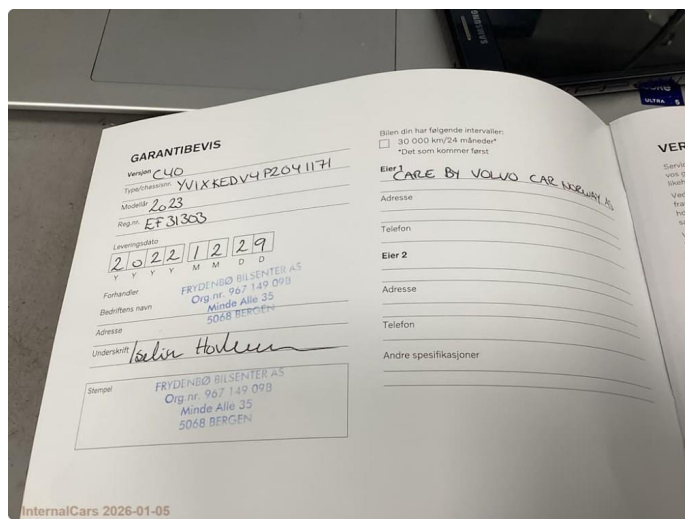 SAMSUNG
ULTRA 5
GARANTIBEVIS
Versjon C40
Type/chassisnr. YV1XKEDV4P2041171
Modellår 2023
Reg.nr. EF31303
Leveringsdato
2 0 2 2 1 2 2 9
Y Y Y Y M M D D
Forhandler
Bedriftens navn
FRYDENBØ BILSENTER AS
Org.nr. 967 149 098
Minde Alle 35
5068 BERGEN
Adresse
Underskrift Iselin
Stempel
FRYDENBØ BILSENTER AS
Org.nr. 967 149 098
Minde Alle 35
5068 BERGEN
Bilen din har følgende intervaller:
30 000 km/24 måneder*
*Det som kommer først
Eier 1 CARE BY VOLVO CAR NORWAY AS
Adresse
Telefon
Eier 2
Adresse
Telefon
Andre spesifikasjoner
VER
InternalCars 2026-01-05